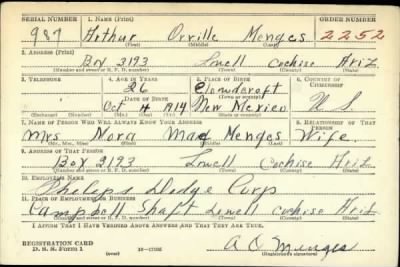 SERIAL NUMBER 1. NAME (Print) ORDER NUMBER
987 Arthur Orville Menges 2252
(First) (Middle) (Last)
2. ADDRESS (Print)
Box 3193 Lowell Cochise Ariz
(Number and street or R. F. D. number) (Town) (County) (State)
3. TELEPHONE 4. AGE IN YEARS 5. PLACE OF BIRTH 6. COUNTRY OF CITIZENSHIP
26 Cloudcroft
DATE OF BIRTH (Town or county)
Oct 4 1914 New Mexico U. S.
(Exchange) (Number) (Mo.) (Day) (Yr.) (State or country)
7. NAME OF PERSON WHO WILL ALWAYS KNOW YOUR ADDRESS 8. RELATIONSHIP OF THAT PERSON
Mrs Nora Mae Menges Wife
(Mr., Mrs., Miss) (First) (Middle) (Last)
9. ADDRESS OF THAT PERSON
Box 3193 Lowell Cochise Ariz
(Number and street or R. F. D. number) (Town) (County) (State)
10. EMPLOYER'S NAME
Phelps Dodge Corp
11. PLACE OF EMPLOYMENT OR BUSINESS
Campbell Shaft Lowell Cochise Ariz
(Number and street or R. F. D. number) (Town) (County) (State)
I AFFIRM THAT I HAVE VERIFIED ABOVE ANSWERS AND THAT THEY ARE TRUE.
REGISTRATION CARD
D. S. S. Form 1 16-17105 A O Menges
(Registrant's signature)